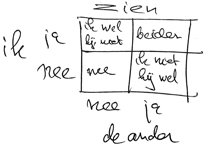 zien
ik ja ik wel hij niet beiden
nee nee ik niet hij wel
nee ja
de ander